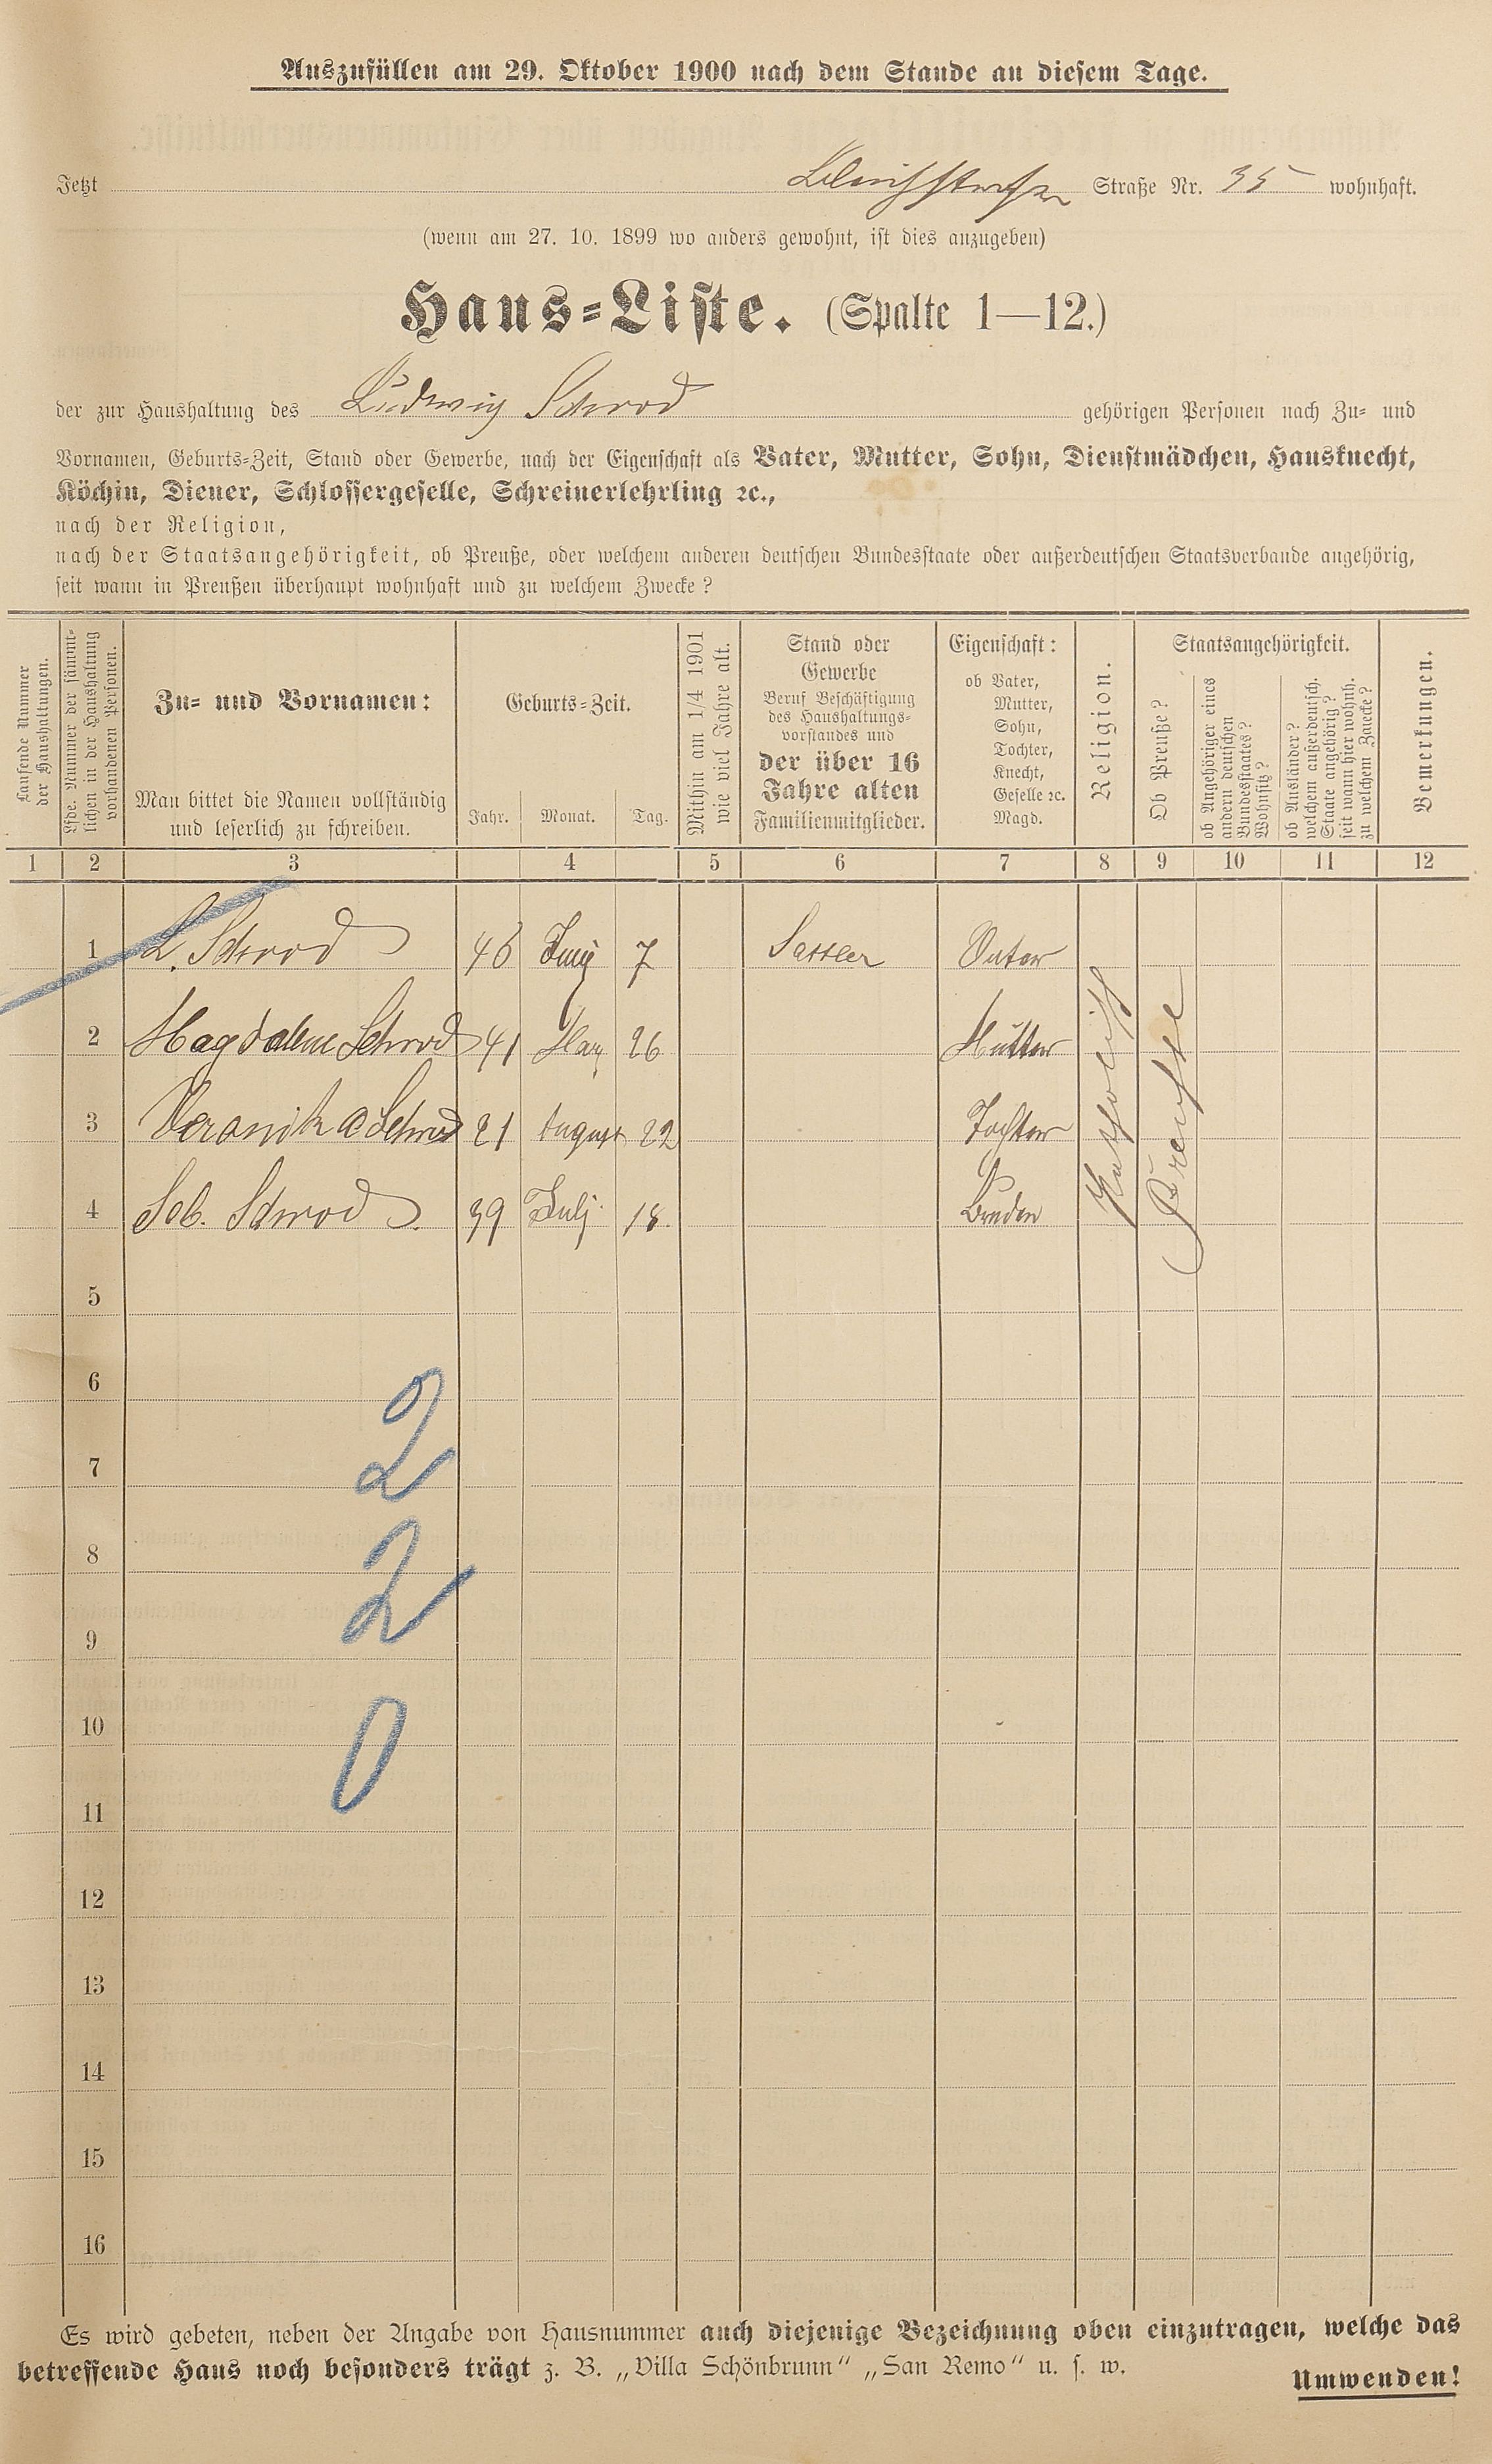 Auszufüllen am 29. Oktober 1900 nach dem Stande an diesem Tage.
Jetzt Straße Nr. 35 wohnhaft.
(wenn am 27. 10. 1899 wo anders gewohnt, ist dies anzugeben)
Haus-Liste. (Spalte 1—12.)
der zur Haushaltung des Ludwig Schrod gehörigen Personen nach Zu- und
Vornamen, Geburts-Zeit, Stand oder Gewerbe, nach der Eigenschaft als Vater, Mutter, Sohn, Dienstmädchen, Hausknecht,
Köchin, Diener, Schlossergeselle, Schreinerlehrling ꝛc.,
nach der Religion,
nach der Staatsangehörigkeit, ob Preuße, oder welchem anderen deutschen Bundesstaate oder außerdeutschen Staatsverbande angehörig,
seit wann in Preußen überhaupt wohnhaft und zu welchem Zwecke?
Laufende Nummer
der Haushaltungen.
Lfde. Nummer der sämmt-
lichen in der Haushaltung
vorhandenen Personen.
Zu- und Vornamen:
Man bittet die Namen vollständig
und leserlich zu schreiben.
Geburts-Zeit.
Jahr. Monat. Tag.
Mithin am 1/4 1901
wie viel Jahre alt.
Stand oder
Gewerbe
Beruf Beschäftigung
des Haushaltungs-
vorstandes und
der über 16
Jahre alten
Familienmitglieder.
Eigenschaft:
ob Vater,
Mutter,
Sohn,
Tochter,
Knecht,
Geselle ꝛc.
Magd.
Religion.
Staatsangehörigkeit.
Ob Preuße?
ob Angehöriger eines
andern deutschen
Bundesstaates?
Wohnsitz?
ob Ausländer?
welchem außerdeutsch.
Staate angehörig?
seit wann hier wohnh.
zu welchem Zwecke?
Bemerkungen.
1 2 3 4 5 6 7 8 9 10 11 12
1 L. Schrod 46 Juny 7 Sattler Vater
2 Magdalene Schrod 41 May 26 Mutter
3 Veronika Schrod 21 August 22 Tochter
4 Seb. Schrod 39 Julj 18. Bruder
Katholisch
Preusse
5
6
7
8
9
10
11
12
13
14
15
16
2
2
0
Es wird gebeten, neben der Angabe von Hausnummer auch diejenige Bezeichnung oben einzutragen, welche das
betreffende Haus noch besonders trägt z. B. „Villa Schönbrunn" „San Remo" u. s. w.
Umwenden!